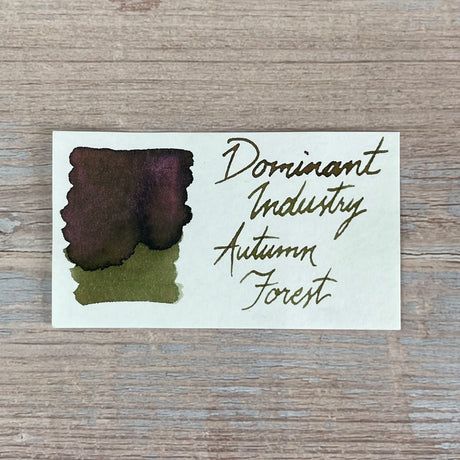 Dominant
Industry
Autumn
Forest